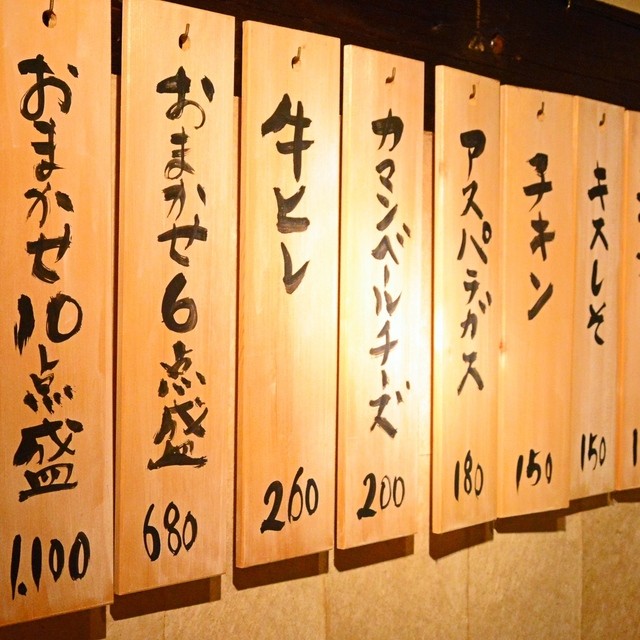 おまかせ10点盛
1.100
おまかせ6点盛
680
牛ヒレ
260
カマンベールチーズ
200
アスパラガス
180
チキン
150
キスしそ
150